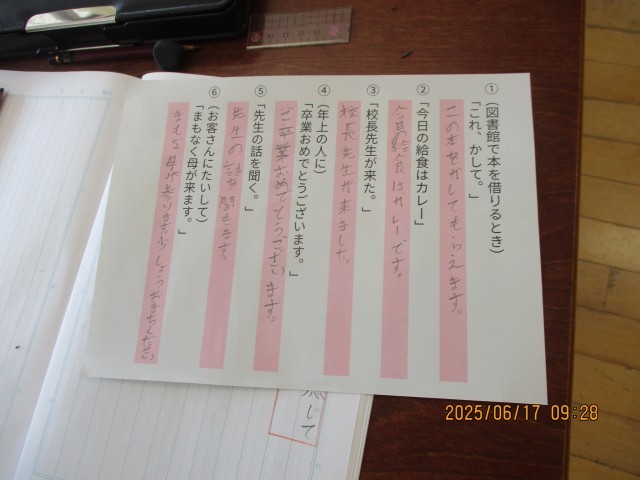 ①（図書館で本を借りるとき）
「これ、かして。」
この本をかしてもらえます。
②「今日の給食はカレー」
今日の給食はカレーです。
③「校長先生が来た。」
校長先生が来ました。
④（年上の人に）
「卒業おめでとうございます。」
ご卒業おめでとうございます。
⑤「先生の話を聞く。」
先生の話を聞きます。
⑥（お客さんにたいして）
「まもなく母が来ます。」
まもな母が来ります。少しょうおまちください
じて
2025/06/17 09:28